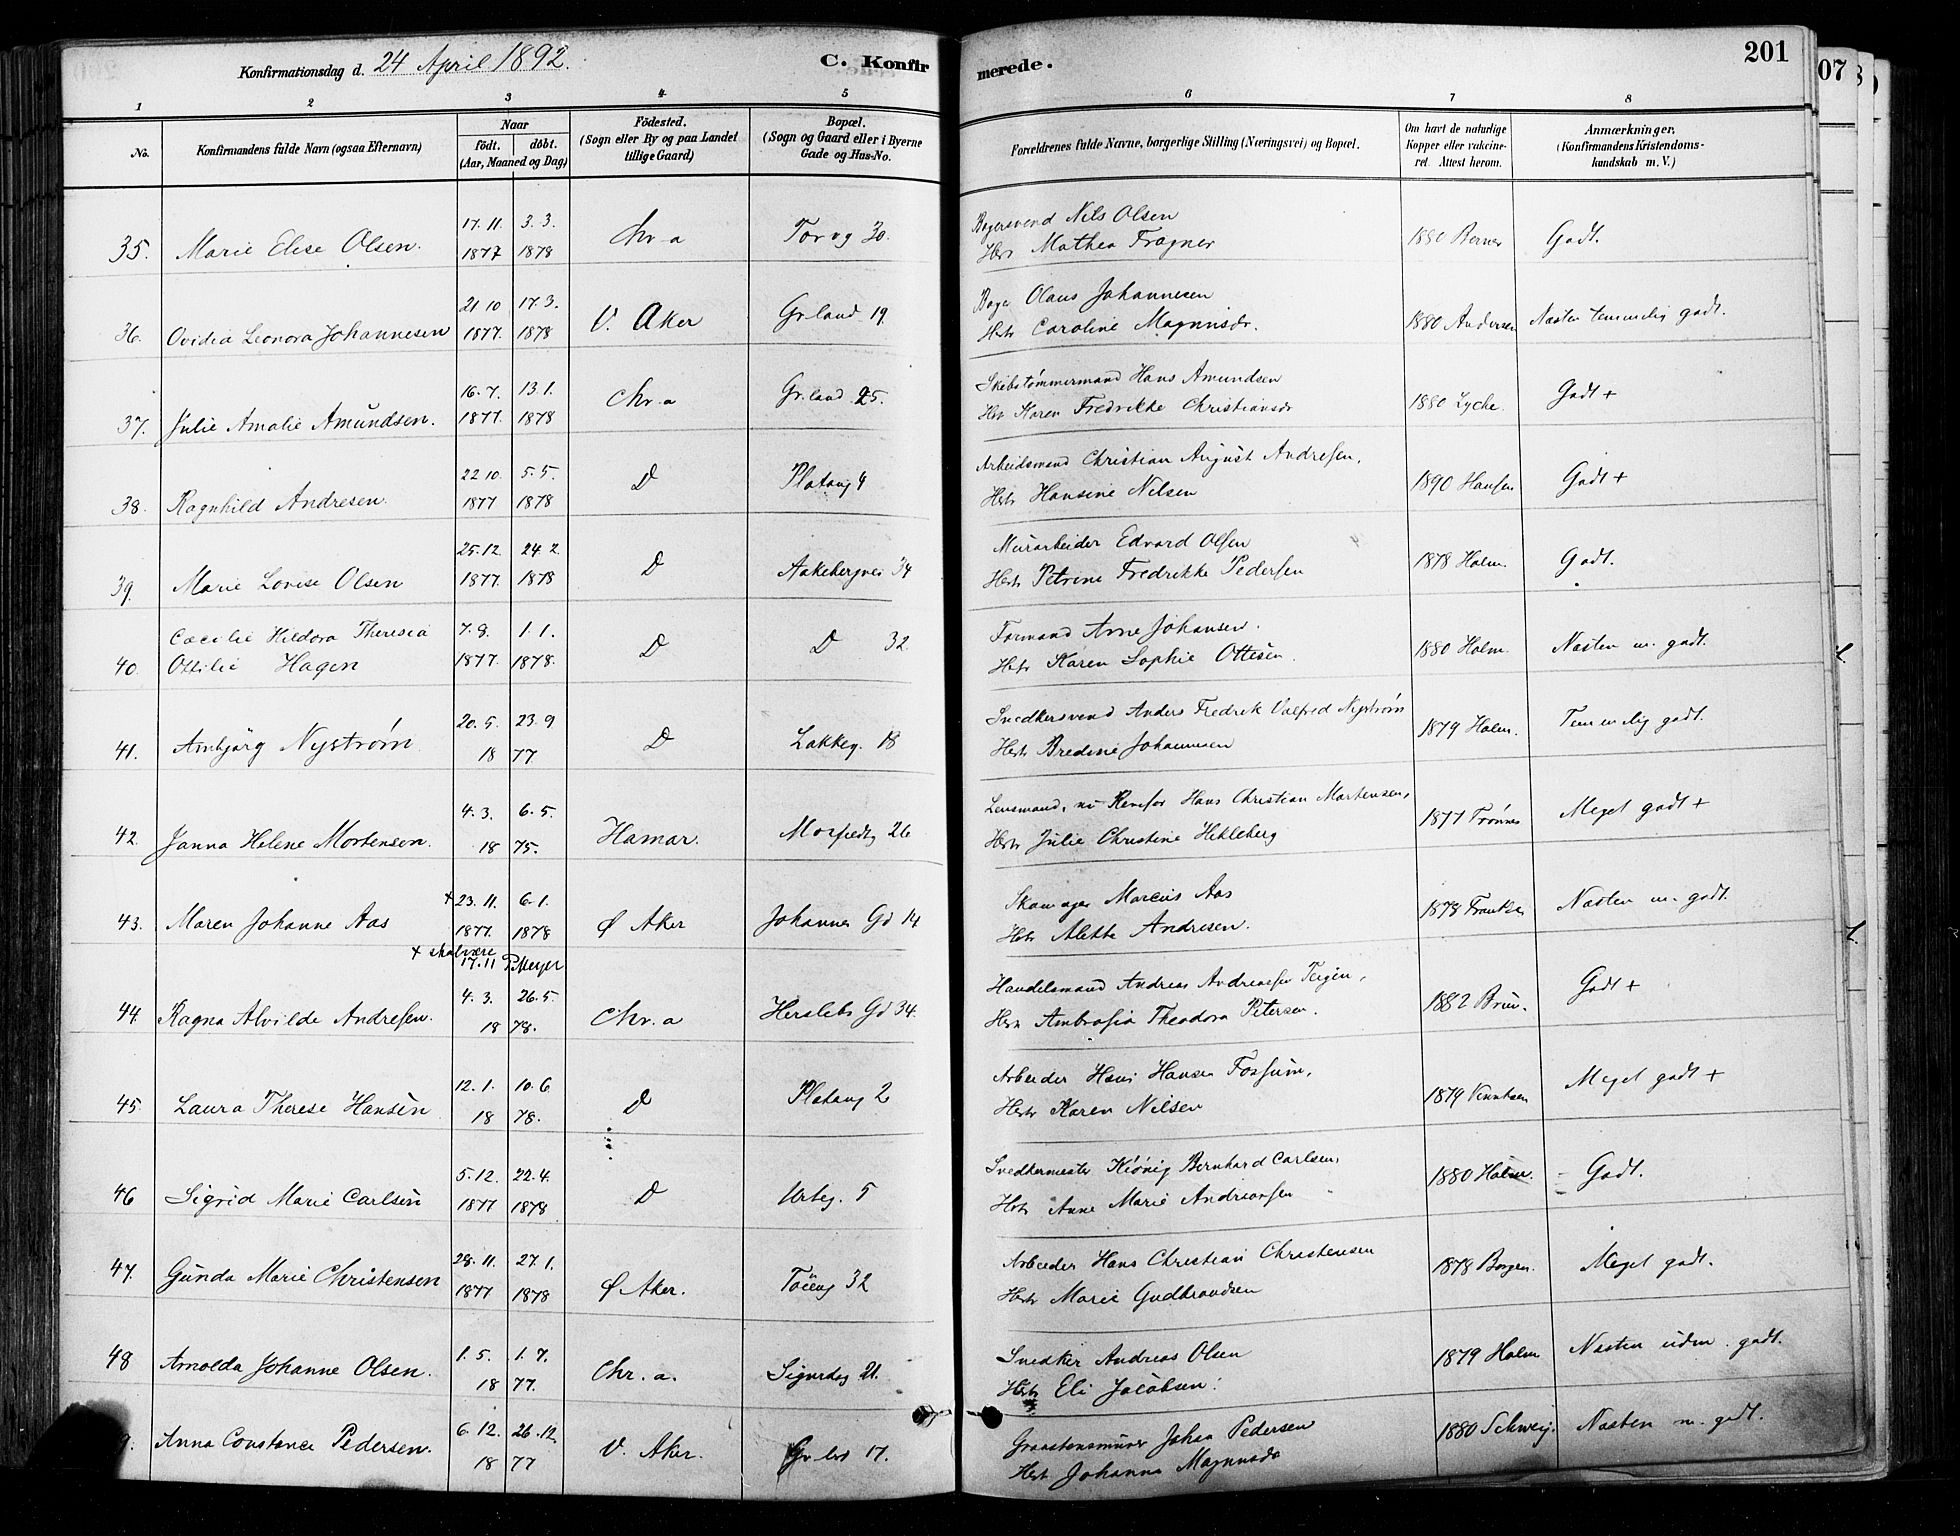 Konfirmationsdag d. 24 April 1892. C. Konfirmerede. 201
1 2 3 4 5 6 7 8
No. Konfirmandens fulde Navn (ogsaa Efternavn) Naar födt. döbt. (Aar, Maaned og Dag) Födested. (Sogn eller By og paa Landet tillige Gaard) Bopæl. (Sogn og Gaard eller i Byerne Gade og Hus-No. Forældrenes fulde Navne, borgerlige Stilling (Næringsvei) og Bopæl. Om havt de naturlige Kopper eller vakcineret. Attest herom. Anmærkninger. (Konfirmandens Kristendomskundskab m. V.)
17. 11. 3. 3. Bagersvend Nils Olsen
35. Marie Elise Olsen. 1877 1878 Chr. a Torvg 30. Hst Mathea Fragner 1880 Berner Godt.
21 10 17. 3. Bager Olaus Johannesen
36. Ovidia Leonora Johannesen 1877. 1878 V. Aker Gr.land 19. Hst Caroline Magnusdr. 1880 Andersen Næsten temmelig godt.
16. 7. 13. 1. Skibstømmermand Hans Amundsen
37. Julie Amalie Amundsen. 1877. 1878 Chr. a Gr.land 25. Hst Karen Fredrikke Christiansdr 1880 Lyche. Godt +
22 10. 5. 5. Arbeidsmand Christian August Andresen,
38. Ragnhild Andresen. 1877 1878 D Platoug 4 Hst Hansine Nilsen 1890 Hansen Godt +
25. 12. 24. 2. Murarbeider Edvard Olsen
39. Marie Lovise Olsen 1877. 1878 D Aakebergvei 34 Hst Petrine Fredrikke Pedersen 1878 Holm. Godt.
Cæcilie Hildora Theresia 7. 9. 1. 1. Formand Arne Johansen.
40. Ottilie Hagen 1877. 1878. D D 32 Hst Karen Sophie Ottesen. 1880 Holm. Næsten m. godt.
20. 5. 23. 9 Snedkersvend Anders Fredrik Valfred Nystrøm
41. Arnbjørg Nystrøm 18 77 D Lakkeg. 18 Hst Bredine Johannesen 1879 Holm. Temmelig godt.
4. 3. 6. 5. Lensmand, nu Hans Christian Mortensen,
42. Janna Helene Mortensen. 18 75. Hamar. 26 Hst Julie Christine Hekleberg 1877 Trønnes Meget godt +
+ 23. 11. 6. 1. Skomager Marcus Aas
43. Maren Johanne Aas 1877. 1878 Ø Aker Johannes Gd 14 Hst Alette Andresen. 1878 Næsten m. godt.
+ skal være 17. 11 P. Meyer
4. 3. 26. 5. Handelsmand Andreas Andreassen
44. Ragna Alvilde Andresen. 18 78. Chr. a Herslebs Gd 34. Hst Ambrosia Theodora Petersen. 1882 Brun. Godt +
12. 1. 10. 6 Arbeider Hans Hansen Fossum,
45. Laura Therese Hansen 18 78. D Platoug 2 Hst Karen Nilsen 1879 Meget godt +
5. 12. 22. 4. Snedkermester Kiönig Bernhard Carlsen,
46 Sigrid Marie Carlsen 1877 1878 D Urteg. 5 Hst Anne Marie Andreassen 1880 Holm. Godt.
28. 11. 27. 1. Arbeider Hans Christian Christensen
47. Gunda Marie Christensen 1877 1878 Ø Aker. Töieng 32 Hst Marie Gudbrandsen 1878 Borgen. Meget godt.
1. 5. 1. 7. Snedker Andreas Olsen
48 Arnolda Johanne Olsen. 18 77. Chr. a. Sigurdsg 21. Hst Eli Jacobsen. 1879 Holm Næsten udm. godt.
6. 12. 26. 12. Graastensmurer Johan Pedersen
9. Anna Constance Pedersen. 18 77 V. Aker. 17. Hst Johanna Magnusdr 1880 Næsten m. godt.
07